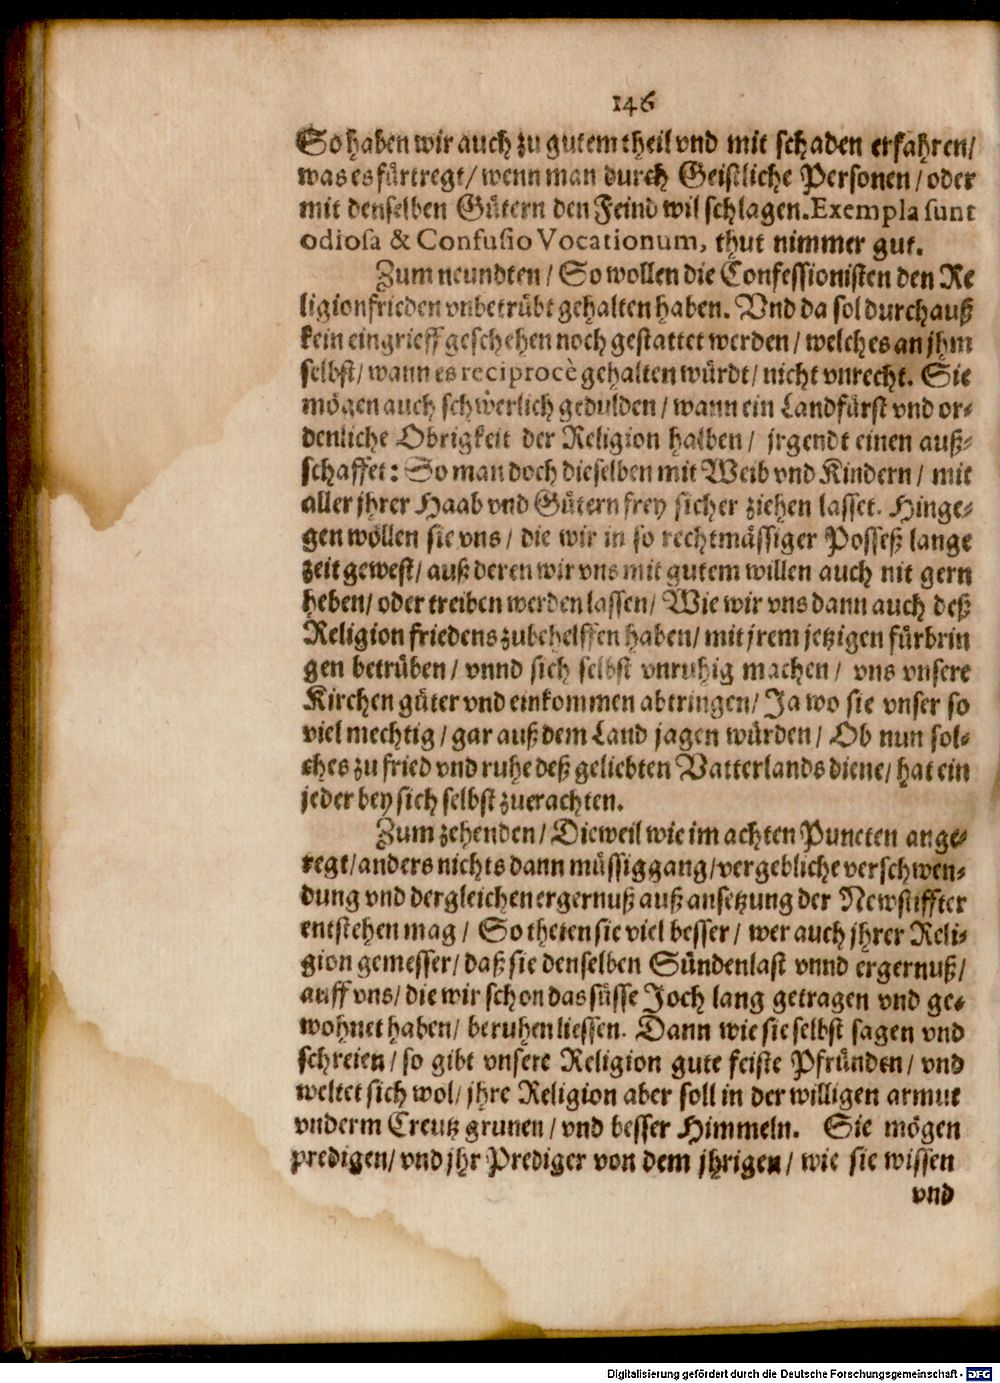 146
So haben wir auch zu gutem theil vnd mit schaden erfahren/
was es fürtregt/ wenn man durch Geistliche Personen/ oder
mit denselben Gütern den Feind wil schlagen. Exempla sunt
odiosa & Confusio Vocationum, thut nimmer gut.
Zum neundten/ So wollen die Confessionisten den Re
ligionfrieden vnbetrübt gehalten haben. Vnd da sol durchauß
kein eingrieff geschehen noch gestattet werden/ welches an jhm
selbst/ wann es reciprocè gehalten würdt/ nicht vnrecht. Sie
mögen auch schwerlich gedulden/ wann ein Landfürst vnd or-
denliche Obrigkeit der Religion halben/ jrgendt einen auß-
schaffet: So man doch dieselben mit Weib vnd Kindern/ mit
aller jhrer Haab vnd Gütern frey sicher ziehen lasset. Hinge-
gen wöllen sie vns/ die wir in so rechtmässiger Posseß lange
zeit gewest/ auß deren wir vns mit gutem willen auch nit gern
heben/ oder treiben werden lassen/ Wie wir vns dann auch deß
Religion friedens zubehelffen haben/ mit jrem jetzigen fürbrin
gen betrüben/ vnnd sich selbst vnruhig machen/ vns vnsere
Kirchen güter vnd einkommen abtringen/ Ja wo sie vnser so
viel mechtig/ gar auß dem Land jagen würden/ Ob nun sol-
ches zu fried vnd ruhe deß geliebten Vatterlands diene/ hat ein
jeder bey sich selbst zuerachten.
Zum zehenden/ Dieweil wie im achten Puncten ange-
regt/ anders nichts dann müssiggang/ vergebliche verschwen-
dung vnd dergleichen ergernuß auß ansetzung der Newstiffter
entstehen mag/ So theten sie viel besser/ wer auch jhrer Reli-
gion gemesser/ daß sie denselben Sündenlast vnnd ergernuß/
auff vns/ die wir schon das süsse Joch lang getragen vnd ge-
wohnet haben/ beruhen liessen. Dann wie sie selbst sagen vnd
schreien/ so gibt vnsere Religion gute feiste Pfründen/ vnd
weltet sich wol/ jhre Religion aber soll in der willigen armut
vnderm Creutz grunen/ vnd besser Himmeln. Sie mögen
predigen/ vnd jhr Prediger von dem jhrigen/ wie sie wissen
vnd
Digitalisierung gefördert durch die Deutsche Forschungsgemeinschaft - DFG